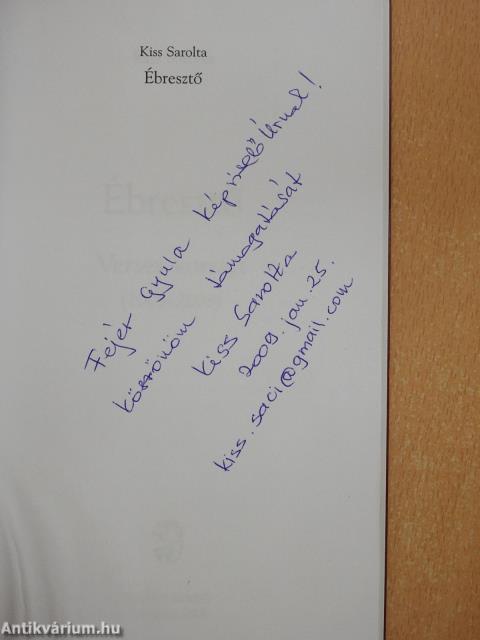 Kiss Sarolta
Ébresztő
Fejér Gyula képviselő Úrnak!
köszönöm támogatását
Kiss Sarolta
2009. jan. 25.
kiss.saci@gmail.com
Ébresztő
Antikvárium.hu